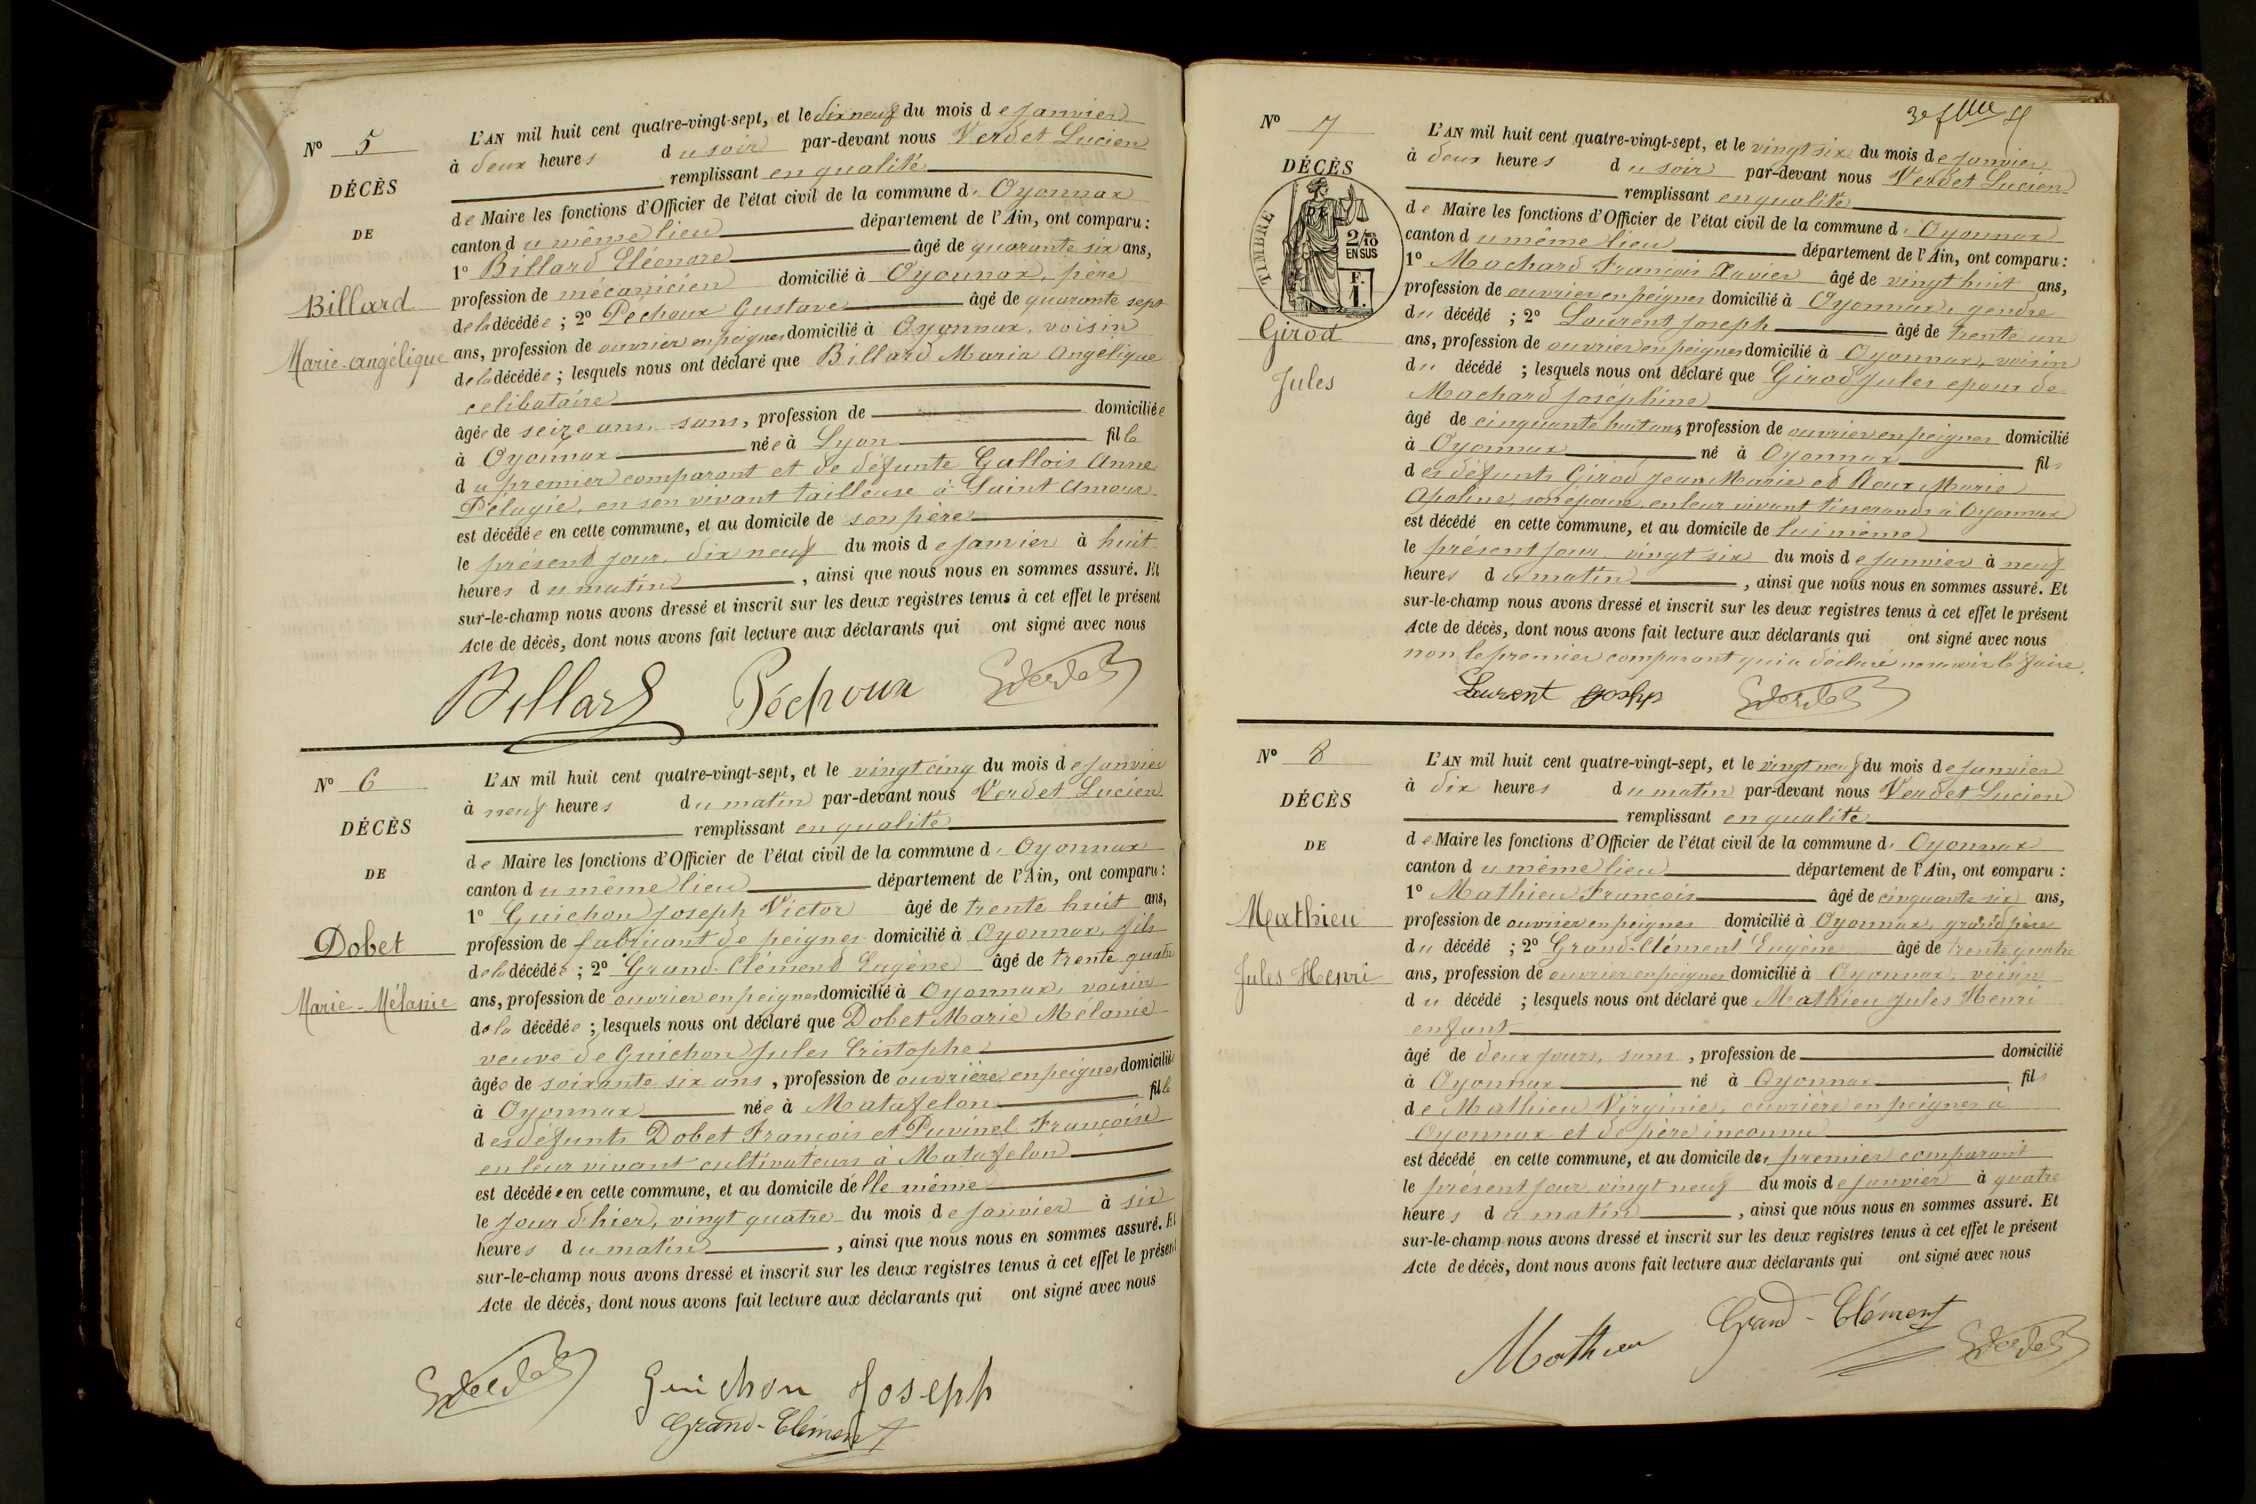 N° 5
DÉCÈS
DE
Billard
Marie-Angélique
L'AN mil huit cent quatre-vingt-sept, et le dix neuf du mois de Janvier
à deux heures du soir par-devant nous Verdet Lucien
remplissant en qualité
de Maire les fonctions d'Officier de l'état civil de la commune d' Oyonnax
canton du même lieu département de l'Ain, ont comparu :
1° Billard Eléonore âgé de quarante six ans,
profession de mécanicien domicilié à Oyonnax, père
de la décédée ; 2° Pechoux Gustave âgé de quarante sept
ans, profession de ouvrier en peignes domicilié à Oyonnax, voisin
de la décédée ; lesquels nous ont déclaré que Billard Maria Angélique
celibataire
âgée de seize ans, sans, profession de domiciliée
à Oyonnax née à Lyon fille
du premier comparant et de défunte Gallois Anne
Pélagie, en son vivant tailleuse à Saint Amour
est décédée en cette commune, et au domicile de son père
le présent jour, dix neuf du mois de Janvier à huit
heures du matin , ainsi que nous nous en sommes assuré. Et
sur-le-champ nous avons dressé et inscrit sur les deux registres tenus à cet effet le présent
Acte de décès, dont nous avons fait lecture aux déclarants qui ont signé avec nous
Billard Péchoux Verdet
N° 6
DÉCÈS
DE
Dobet
Marie-Mélanie
L'AN mil huit cent quatre-vingt-sept, et le vingt cinq du mois de Janvier
à neuf heures du matin par-devant nous Verdet Lucien
remplissant en qualité
de Maire les fonctions d'Officier de l'état civil de la commune d' Oyonnax
canton du même lieu département de l'Ain, ont comparu :
1° Guichon Joseph Victor âgé de trente huit ans,
profession de fabricant de peignes domicilié à Oyonnax, fils
de la décédée ; 2° Grand-Clément Eugène âgé de trente quatre
ans, profession de ouvrier en peignes domicilié à Oyonnax, voisin
de la décédée ; lesquels nous ont déclaré que Dobet Marie Mélanie
veuve de Guichon Jules Cristophe
âgée de soixante six ans , profession de ouvrière en peignes domiciliée
à Oyonnax née à Matafelon fille
des défunts Dobet François et Puvinel Françoise
en leur vivant cultivateurs à Matafelon
est décédée en cette commune, et au domicile de lle même
le jour d'hier, vingt quatre du mois de Janvier à six
heures du matin , ainsi que nous nous en sommes assuré. Et
sur-le-champ nous avons dressé et inscrit sur les deux registres tenus à cet effet le présent
Acte de décès, dont nous avons fait lecture aux déclarants qui ont signé avec nous
Verdet Guichon Joseph
Grand-Clément
N° 7
DÉCÈS
DE
TIMBRE
2/10
EN SUS
F.
1.
Girod
Jules
L'AN mil huit cent quatre-vingt-sept, et le vingt six du mois de Janvier
à deux heures du soir par-devant nous Verdet Lucien
remplissant en qualité
de Maire les fonctions d'Officier de l'état civil de la commune d' Oyonnax
canton du même lieu département de l'Ain, ont comparu :
1° Machard François Xavier âgé de vingt huit ans,
profession de ouvrier en peignes domicilié à Oyonnax, gendre
du décédé ; 2° Laurent Joseph âgé de trente un
ans, profession de ouvrier en peignes domicilié à Oyonnax, voisin
du décédé ; lesquels nous ont déclaré que Girod Jules epoux de
Machard Joséphine
âgé de cinquante huit ans, profession de ouvrier en peignes domicilié
à Oyonnax né à Oyonnax fils
des défunts Girod Jean Marie et Roux Marie
Apoline, son epouse, en leur vivant tisserands à Oyonnax
est décédé en cette commune, et au domicile de lui même
le présent jour vingt six du mois de Janvier à neuf
heures du matin , ainsi que nous nous en sommes assuré. Et
sur-le-champ nous avons dressé et inscrit sur les deux registres tenus à cet effet le présent
Acte de décès, dont nous avons fait lecture aux déclarants qui ont signé avec nous
non le premier comparant qui a déclaré ne savoir le faire.
Laurent Joseph Verdet
N° 8
DÉCÈS
DE
Mathieu
Jules Henri
L'AN mil huit cent quatre-vingt-sept, et le vingt neuf du mois de Janvier
à dix heures du matin par-devant nous Verdet Lucien
remplissant en qualité
de Maire les fonctions d'Officier de l'état civil de la commune d' Oyonnax
canton du même lieu département de l'Ain, ont comparu :
1° Mathieu François âgé de cinquante six ans,
profession de ouvrier en peignes domicilié à Oyonnax, grand père
du décédé ; 2° Grand-Clément Eugène âgé de trente quatre
ans, profession de ouvrier en peignes domicilié à Oyonnax, voisin
du décédé ; lesquels nous ont déclaré que Mathieu Jules Henri
enfant
âgé de deux jours, sans , profession de domicilié
à Oyonnax né à Oyonnax fils
de Mathieu Virginie, ouvrière en peignes à
Oyonnax et de père inconnu
est décédé en cette commune, et au domicile du premier comparant
le présent jour vingt neuf du mois de Janvier à quatre
heures du matin , ainsi que nous nous en sommes assuré. Et
sur-le-champ nous avons dressé et inscrit sur les deux registres tenus à cet effet le présent
Acte de décès, dont nous avons fait lecture aux déclarants qui ont signé avec nous
Mathieu Grand-Clément Verdet